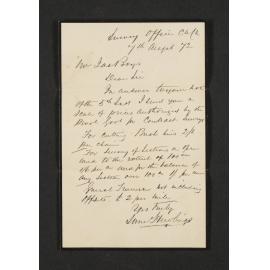 Survey Office
7th Augst 72
Mr Jas
Dear Sir
In answer to yours
of the 5th Inst I send you a
Scale of prices authorized by the
Provl Govt for Contract Surveys
For cutting Bush lines 2/6
per chain
For Survey of Sections a open
area to the extent of 100 ac
1/6 per ac and for the balance of
any Section over 100 ac 1/ per ac
Traverse not including
Offsets £ 2 per mile
Yrs truly
Saml